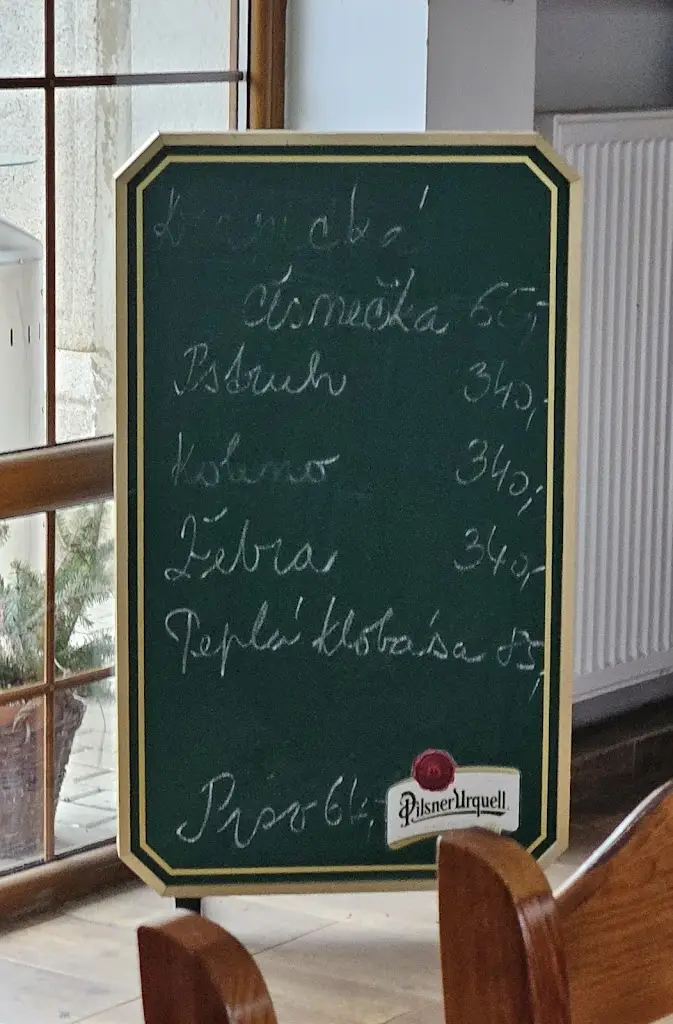 čka 65,-
Pstruh 340,-
Koleno 340,-
Žebra 340,-
Teplá klobása 85,-
Pivo
Pilsner Urquell